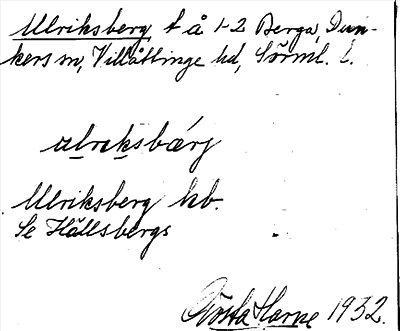 Ulriksberg, t å 1-2 Berga, Dun-
kers sn, Villåttinge hd, Sörml. l.
ulreksbárj
Ulriksberg kb.
Se Hällsbergs
Gösta Harpe 1932.